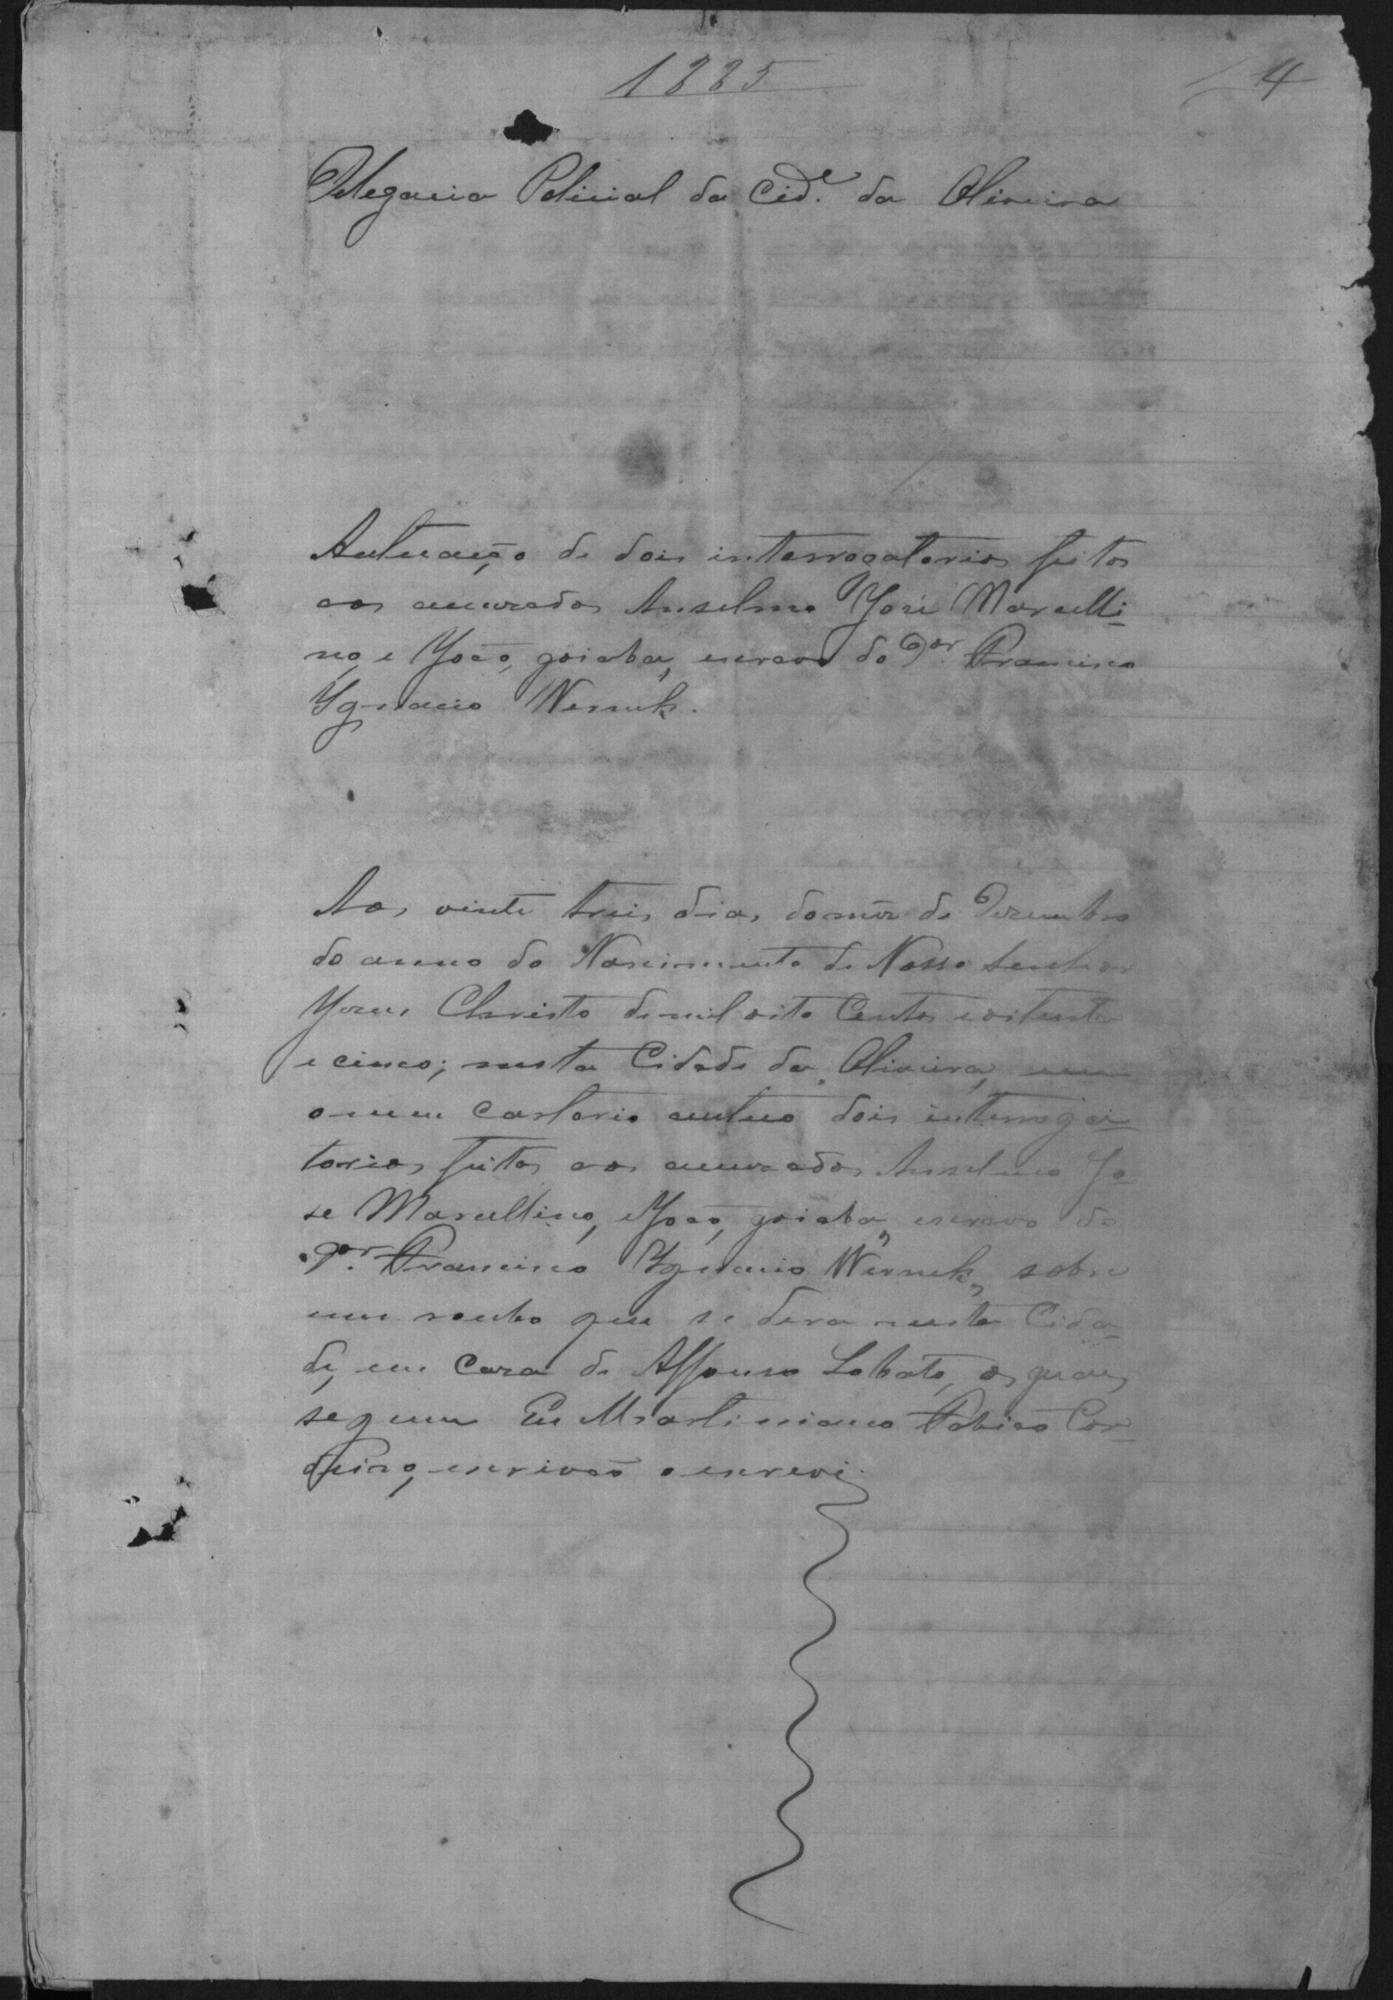 1885
4
Delegacia Policial da Cid.e da Oliveira
Autuação de dois interrogatorios feitos
aos accusados Anselmo José Marcelli-
no, e João, goiaba, escravo do Dor. Francisco
Ignacio Werneck.
Aos vinte treis dias do mês de Dezembro
do anno do Nascimento de Nosso Senhor
Jesus Christo de mil oito Centos e oitenta
e cinco; nesta Cidade da Oliveira, em
o meu cartorio autuo dois interroga-
torios feitos aos accusados Anselmo Jo-
se Marcellino, e João, goiaba, escravo do
Dor. Francisco Ignacio Werneck, sobre
um roubo que se dera nesta Cida-
de, em Casa de Affonso Lobato, os quaes
seguem Eu Martiniano Fabião Cor-
deiro, escrivão o escrevi.